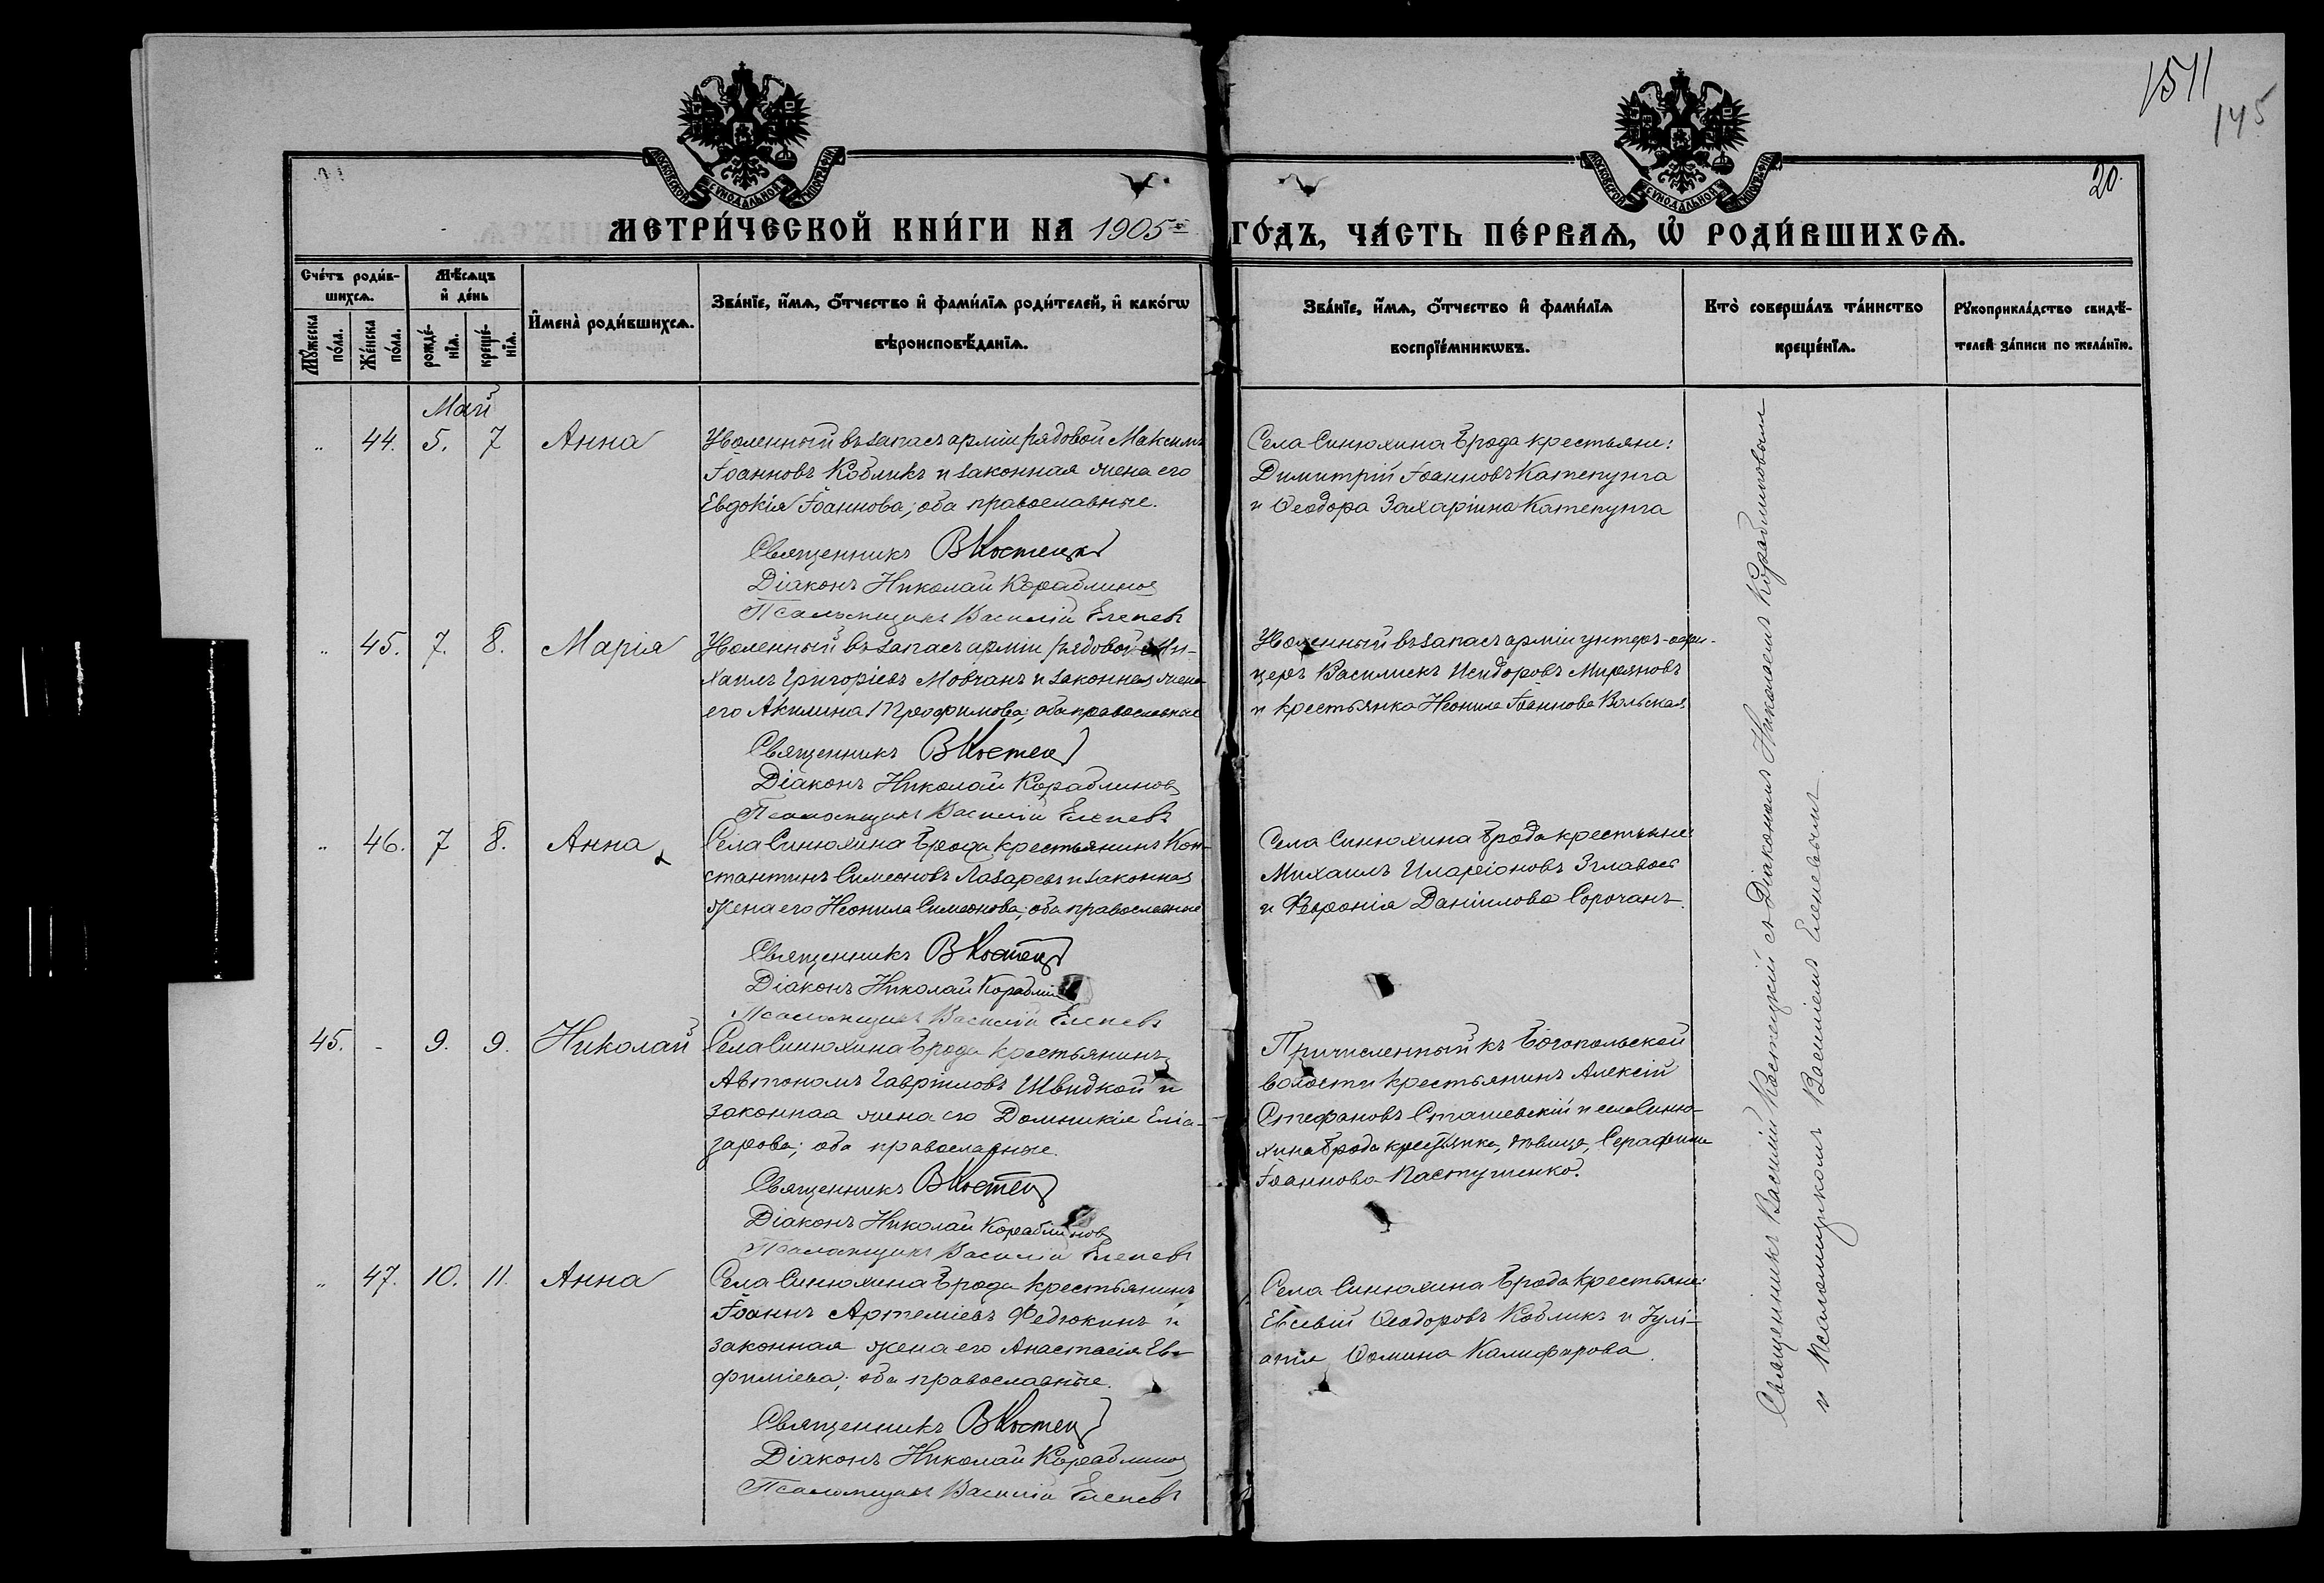 1511
145
20.
МОСКОВСКОЙ СѴНОДАЛЬНОЙ ТИПОГРАФІИ
МОСКОВСКОЙ СѴНОДАЛЬНОЙ ТИПОГРАФІИ
МЕТРИ́ЧЕСКОЙ КНИ́ГИ НА 1905й ГО́ДЪ, ЧА́СТЬ ПЕ́РВАѦ, Ѽ РОДИ́ВШИХСѦ.
Сче́тъ роди́вшихсѧ.
Мꙋ́жеска по́ла.
Же́нска по́ла.
Мѣ́сѧцъ и҆ де́нь
рожде́нїѧ.
креще́нїѧ.
И҆мена̀ роди́вшихсѧ.
Зва́нїе, и҆́мѧ, ѻ҆́тчество и҆ фами́лїѧ роди́телей, и҆ како́гѡ
вѣроисповѣ́данїѧ.
Зва́нїе, и҆́мѧ, ѻ҆́тчество и҆ фами́лїѧ
воспрїе́мникѡвъ.
Кто̀ соверша́лъ та́инство
креще́нїѧ.
Рꙋкоприкла́дство свидѣ́-
телей за́писи по жела́нїю.
Май
„ 44. 5. 7 Анна
Уволенный въ запасъ арміи рядовой Максимъ
Іоанновъ Кобликъ и законная жена его
Евдокія Іоаннова; оба православные.
Священникъ В Костецкій
Діаконъ Николай Кораблиновъ
Псаломщикъ Василій Елепевъ
Села Синюхина Брода крестьяне:
Димитрій Іоанновъ Катепунга
и Ѳеодора Захаріина Катепунга
„ 45. 7. 8. Марія
Уволенный въ запасъ арміи рядовой Ми-
хаилъ Григоріевъ Мовчанъ и законная жена
его Акилина Трофимова; оба православные
Священникъ В Костец
Діаконъ Николай Кораблиновъ
Псаломщикъ Василій Елепевъ
Уволенный въ запасъ арміи унтеръ-офи-
церъ Василискъ Исидоровъ Миряновъ
и крестьянка Неонила Іоаннова Вольская
„ 46. 7 8. Анна
Села Синюхина Брода крестьянинъ Кон-
стантинъ Симеоновъ Лазаревъ и законная
жена его Неонила Симеонова; оба православные
Священникъ В Костец
Діаконъ Николай Корабли
Псаломщикъ Василій Елепевъ
Села Синюхина Брода крестьяне
Михаилъ Иларіоновъ
и Февронія Даніилова Сорочанъ.
45. - 9. 9. Николай
Села Синюхина Брода крестьянинъ
Автономъ Гавріиловъ Швидкой и
законная жена его Домникія Еліа-
зарова; оба православные.
Священникъ В Костец
Діаконъ Николай Кораблиновъ
Псаломщикъ Василій Елепевъ
Причисленный къ Богопольской
волости крестьянинъ Алексій
Стефановъ Сташевскій и села Синю-
хина Брода крестьянка, дѣвица, Серафима
Іоаннова Пастушенко.
„ 47. 10. 11. Анна
Села Синюхина Брода крестьянинъ
Іоаннъ Артеміевъ Федюкинъ и
законная жена его Анастасія Ев-
фиміева; оба православные.
Священникъ В Костец
Діаконъ Николай Кораблиновъ
Псаломщикъ Василій Елепевъ
Села Синюхина Брода крестьяне:
Евсевій Ѳеодоровъ Кобликъ и Іулі-
анія Ѳомина Калифирова.
Священникъ Василій Костецкій съ Діакономъ Николаемъ Кораблиновымъ
и Псаломщикомъ Василіемъ Елепевымъ.